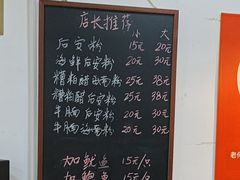 店长推荐
小 大
后安粉 15元 20元
海鲜后安粉 20元 30元
糟粕醋海南粉 25元 38元
糟粕醋后安粉 25元 38元
牛腩后安粉 20元 30元
牛腩海南粉 20元 30元
加鱿鱼 15元/只
加鲍鱼 15元/只
老